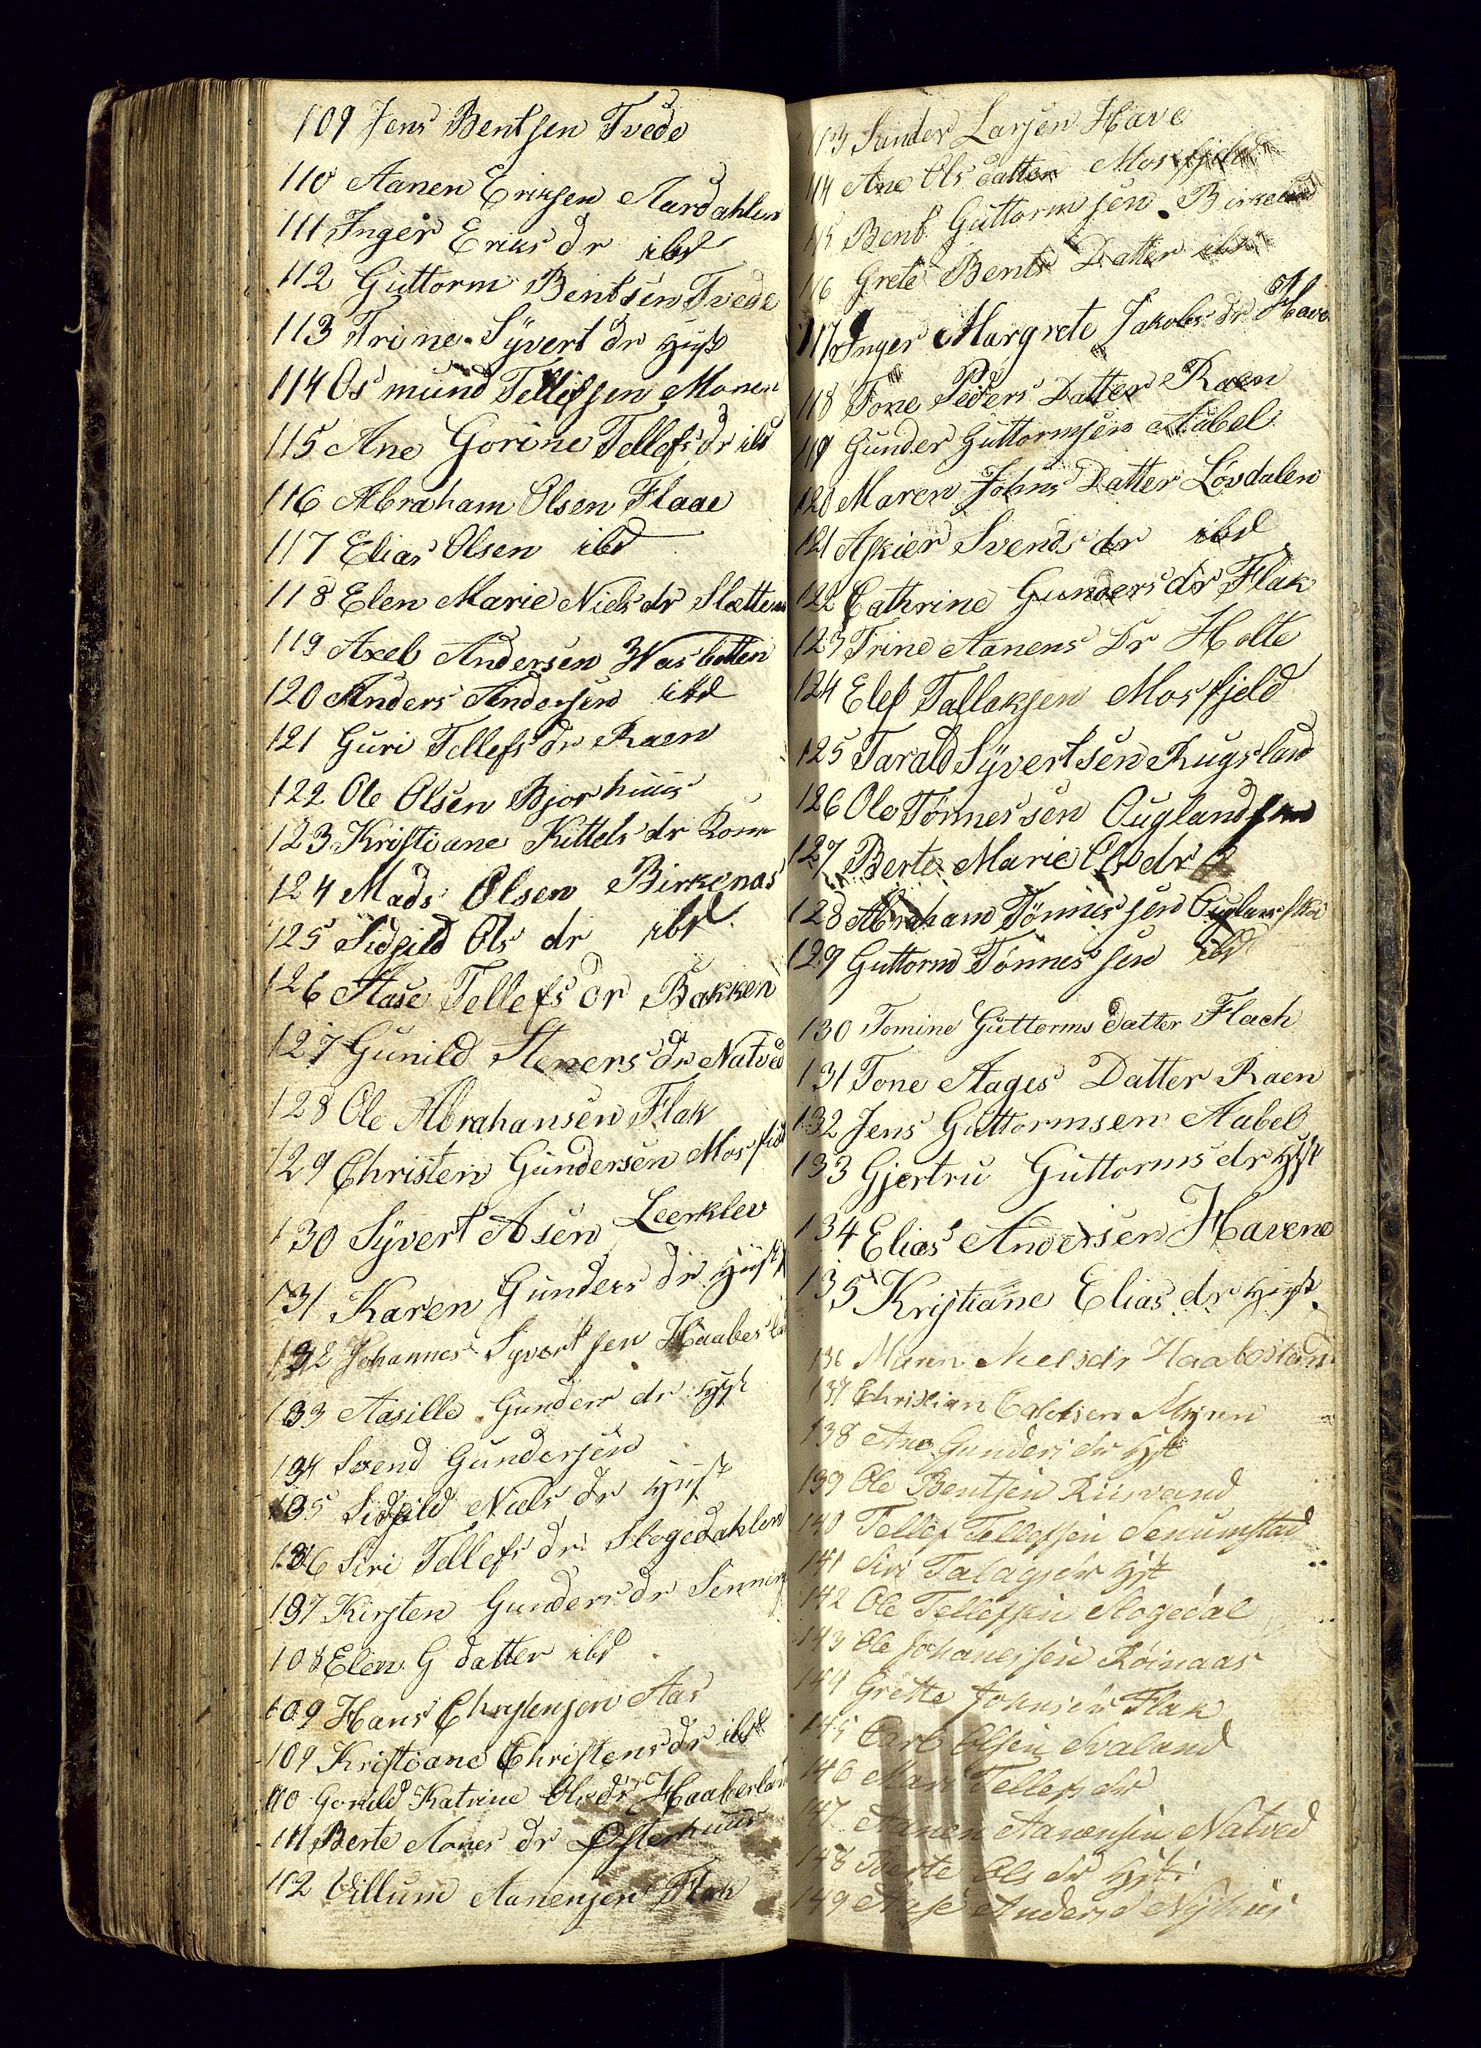 109 Jens Bentsen Tvede
110 Aanen Eriksen Aardahlen
111 Inger Eriks dr ibd
112 Guttorm Bentsen Tvede
113 Trine Syvert dr Hust
114 Osmund Tellefsen Monen
115 Ane Gorine Tellefs dr ibd
116 Abraham Olsen Flaae
117 Elias Olsen ibd
118 Elen Marie Niels dr Slætten
119 Axel Andersen Wasbotten
120 Anders Andersen ibd
121 Guri Tellefs dr Raen
122 Ole Olsen Bjorhuus
123 Kristiane Kittels dr
124 Mads Olsen Birkenas
125 Sidsild Ols dr ibd
126 Aase Tellefs dr Bakken
127 Gunild Steners dr Natved
128 Ole Abrahansen Flak
129 Christen Gundersen Mosfield
130 Syvert Asen Leerklev
131 Karen Gunders dr Hust
132 Johannes Syvertsen Haabesland
133 Aasille Gunders dr Hust
134 Svend Gundersen
135 Sidsild Niels dr Hust
136 Siri Tellefs dr Slogedahlen
137 Kirsten Gunders dr
108 Elen G datter ibd
109 Hans Chrystensen Aas
109 Kristiane Christens dr ibd
110 Gonild Katrine Ols dr Haaberland
111 Berte Aanes dr Østerhuus
112 Villum Aanensen Flak
113 Sunder Larsen Have
114 Ane Ols datter Mosfjeld
115 Bent Guttormsen Birkeland
116 Grete Bents Datter ibd
117 Inger Margrete Jakobs dr Have
118 Tone Peders Datter Raen
119 Gunder Guttormsen Aabel
120 Maren Johns Datter Løvdalen
121 Askier Svends dr ibd
122 Cathrine Gunders dr Flak
123 Trine Aanens Dr Holte
124 Elef Tallaksen Mosfjeld
125 Tarald Syvertsen Rugsland
126 Ole Tønnessen Ougland
127 Berte Marie Ols dr
128 Abraham Tønnessen
129 Guttorm Tønnessen ibd
130 Tomine Guttorms datter Flach
131 Tone Aages Datter Raen
132 Jens Guttormsen Aabel
133 Gjertru Guttorms dr Hust
134 Elias Andersen Havene
135 Kristiane Elias dr Hust
136 Maren Nels dr Haabesland
137 Christian Calefsen
138 Ane Gunders dr Hust
139 Ole Bentsen Risvand
140 Tellef Tellefsen Senumstad
141 Siri Hust
142 Ole Tellefsen Slogedal
143 Ole Johanessen Røinaas
144 Grette Johnsen Flak
145 Carl Olsen Svaland
146 Mari Tellefs dr
147 Aanen Aanensen Natved
148 Berte Ols dr Hust
149 Aase Anders d Nyhus